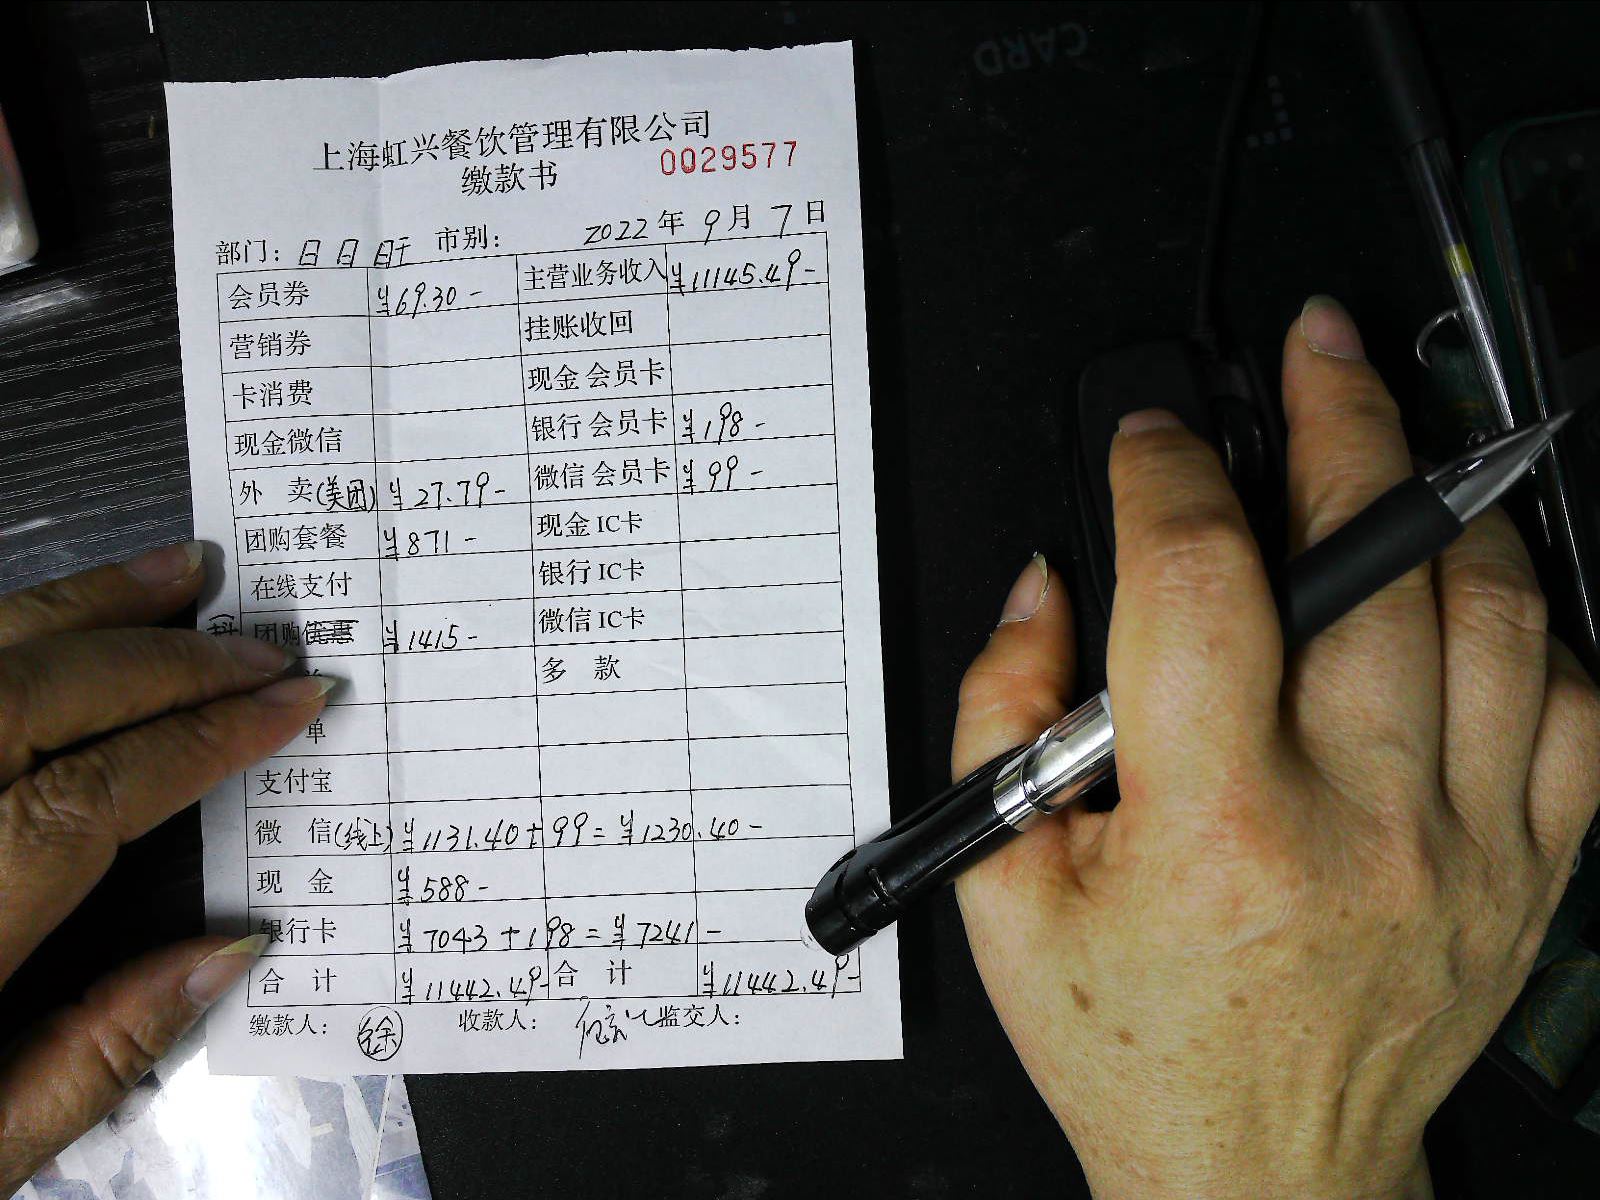 CARD
上海虹兴餐饮管理有限公司
缴款书 0029577
部门: 日日旺 市别: 2022年9月7日
会员券 ¥69.30- 主营业务收入 ¥11145.49-
营销券 挂账收回
卡消费 现金 会员卡
现金微信 银行 会员卡 ¥198-
外 卖(美团) ¥27.79- 微信 会员卡 ¥99-
团购套餐 ¥871- 现金 IC卡
在线支付 银行 IC卡
团购优惠 ¥1415- 微信 IC卡
多 款
单
支付宝
微 信(线上) ¥1131.40+99=¥1230.40-
现 金 ¥588-
银行卡 ¥7043+198=¥7241-
合 计 ¥11442.49- 合 计 ¥11442.49-
缴款人: 徐 收款人: 监交人: